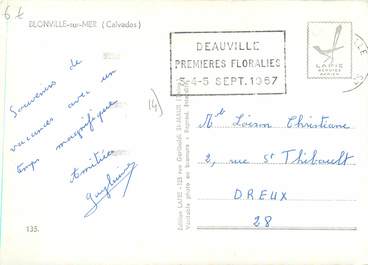 6 t
BLONVILLE-sur-MER (Calvados)
DEAUVILLE
PREMIERES FLORALIES
3-4-5 SEPT. 1967
LAPIE
SERVICE
AERIEN
VILLE
Souvenirs de
vacances avec un
temps magnifique
Amitiés
(4)
Mlle Loison Christiane
2, rue St Thibault
DREUX
28
Edition LAPIE - 123 rue Garibaldi St-MAUR
Véritable photo au bromure - Reprod. interdite
135.